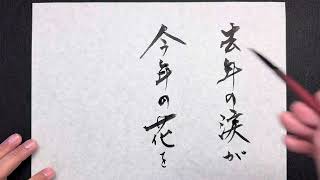 去年の涙が
今年の花を